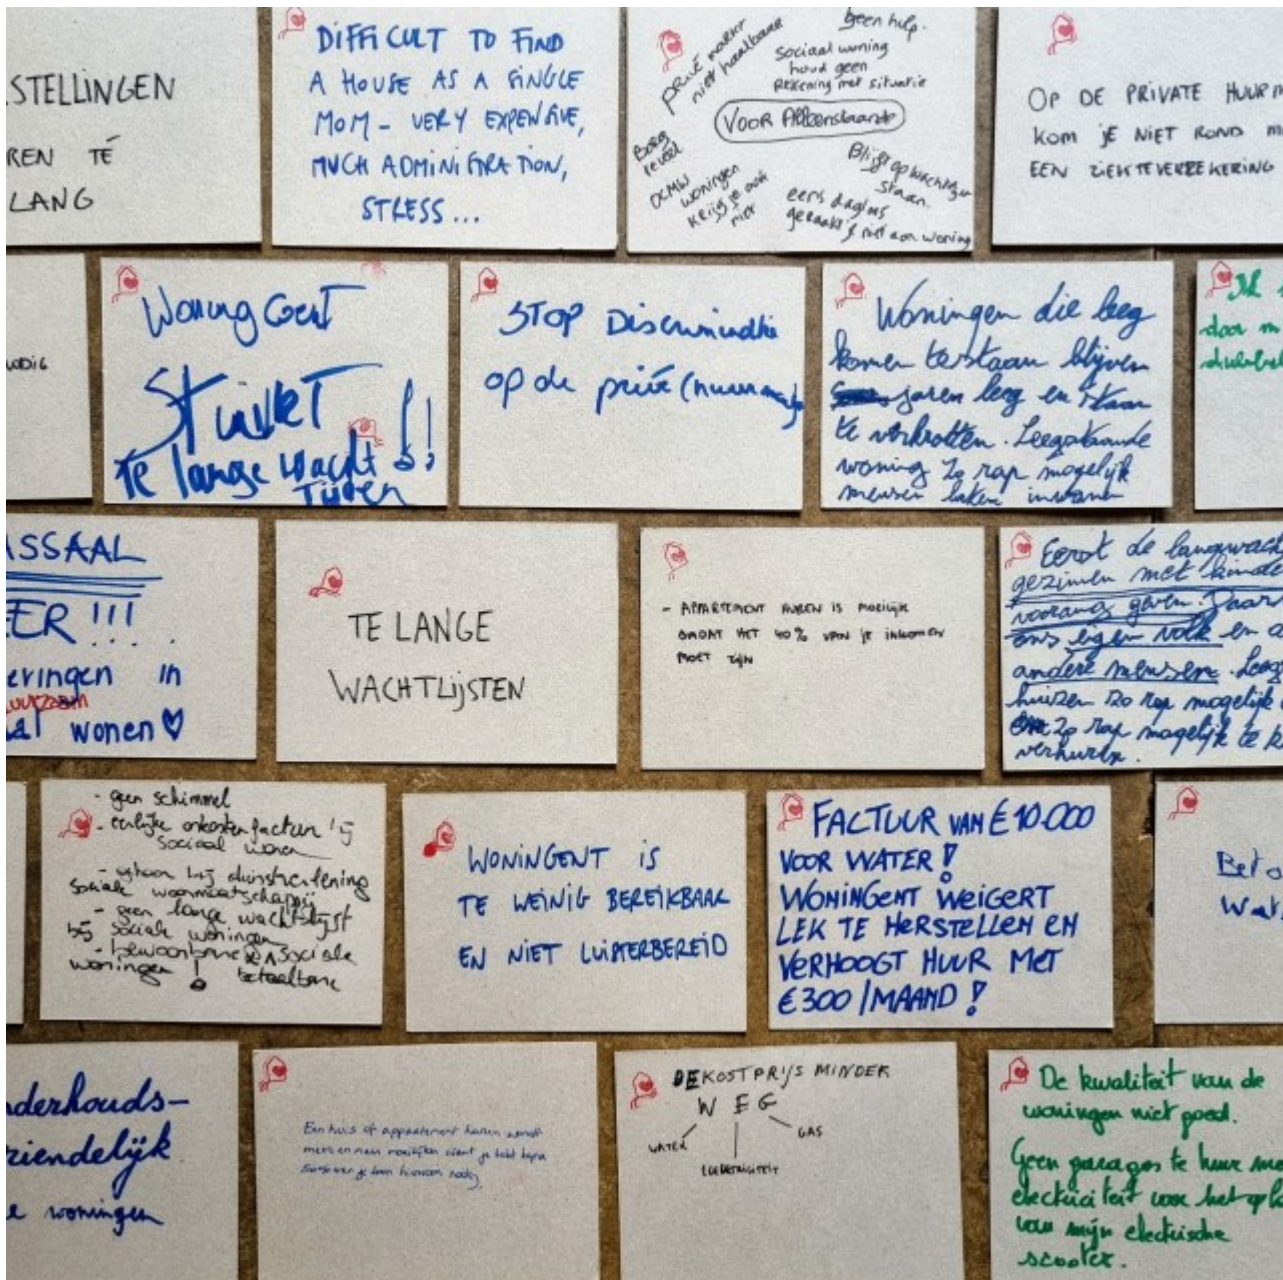 STELLINGEN
REN TÉ
LANG
DIFFICULT TO FIND
A HOUSE AS A SINGLE
MOM - VERY EXPENSIVE,
MUCH ADMINISTRATION,
STRESS...
privé markt
niet haalbaar
geen hulp.
Sociaal woning
houd geen
Rekening met situatie
VOOR Alleenstaande
Borg
teveel
OCMW
woningen
krijg je ook
niet
Blijft op wachtlijst
staan.
eens dagloos
geraakt je niet aan woning
OP DE PRIVATE HUURM
KOM JE NIET ROND M
EEN ZIEKTEVERZEKERING
ODIG
Woning Gent
STINKT !!
Te lange wacht
TIJDEN
STOP Discriminatie
op de privé (huurmarkt
Woningen die leeg
komen te staan blijven
jaren leeg en staan
te verkrotten. Leegstaande
woning zo rap mogelijk
mensen laten inwonen
door m
ASSAAL
ER !!!
eringen in
uurzaam
al wonen ♡
TE LANGE
WACHTLIJSTEN
- APPARTEMENT HUREN IS MOEILIJK
OMDAT HET 40% VAN JE INKOMEN
MOET ZIJN
Eerst de langwach
gezinnen met kinde
voorang geven. Daar
ons eigen volk en
andere mensen. Leeg
huizen zo rap mogelijk
zo rap mogelijk te
verhuren.
- geen schimmel
- eerlijke onkosten facturen bij
sociaal wonen
- bij dienstverlening
sociale woonmaatschappij
- geen lange wachtlijst
bij sociale woningen
- bewoonbare EN sociale
woningen ! betaalbare
WONINGENT IS
TE WEINIG BEREIKBAAR
EN NIET LUISTERBEREID
FACTUUR VAN € 10.000
VOOR WATER !
WONINGENT WEIGERT
LEK TE HERSTELLEN EN
VERHOOGT HUUR MET
€300 /MAAND !
Beta
Wat
nderhouds-
riendelijk
e woningen
Een huis of appartement huren wordt
meer en meer moeilijker want je hebt bijna
je loon hiervoor nodig.
DE KOSTPRIJS MINDER
W E G
WATER
ELEKTRICITEIT
GAS
De kwaliteit van de
woningen niet goed.
Geen garages te huur
electriciteit voor het opla
van mijn electrische
scooter.